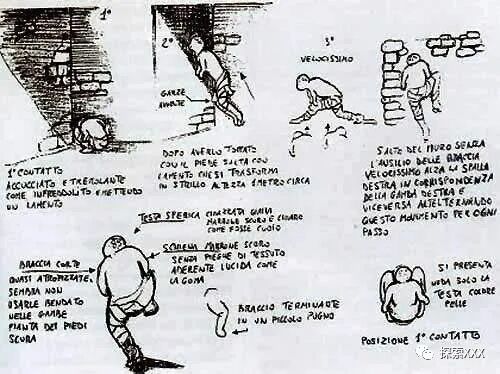 1°
2°
3°
VELOCISSIMO
GAMBE
1° CONTATTO
ACCUCCIATO E TREMOLANTE
COME INFREDDOLITO EMETTENDO
UN LAMENTO
DOPO AVERLO TOCCATO
CON IL PIEDE SALTA CON
LAMENTO CHE SI TRASFORMA
IN STRILLO ALTEZZA 1 METRO CIRCA
SALTO DEL MURO SENZA
L'AUSILIO DELLE BRACCIA
VELOCISSIMO ALZA LA SPALLA
DESTRA IN CORRISPONDENZA
DELLA GAMBA DESTRA E
VICEVERSA ALTERNANDO
QUESTO MOVIMENTO PER OGNI
PASSO
TESTA SFERICA
MARRONE SCURO E CHIARO
COME FOSSE CUOIO
SCHIENA MARRONE SCURO
SENZA PIEGHE DI TESSUTO
ADERENTE LUCIDA COME
LA GOMA
BRACCIA CORTE
QUASI ATROFIZZATE,
SEMBRA NON
USARLE BENDATO
NELLE GAMBE
PIANTA DEI PIEDI
SCURA
BRACCIO TERMINANTE
IN UN PICCOLO PUGNO
SI PRESENTA
SOLO LA
TESTA COLORE
PELLE
POSIZIONE 1° CONTATTO
探索XXX